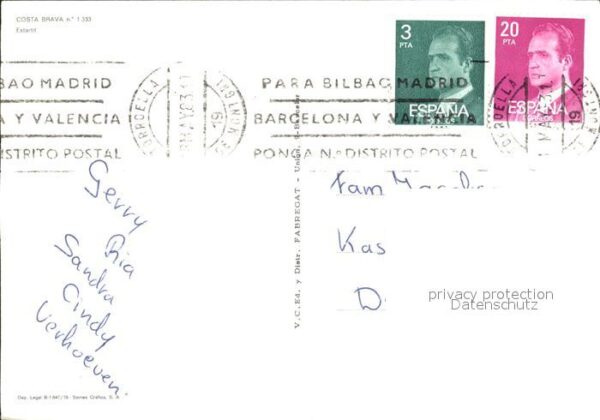 COSTA BRAVA n.º 1.333
Estartit
3
PTA
ESPAÑA
20
PTA
ESPAÑA
CORREOS
BAO MADRID
A Y VALENCIA
DISTRITO POSTAL
TORROELLA
MAY 83
19
PARA BILBAO MADRID
BARCELONA Y VALENCIA
PONGA N.º DISTRITO POSTAL
Gerry
Ria
Sandra
Cindy
Verhoeven.
V.C.Ed. y Distr. FABREGAT - Union,
Fam
Kas
D.
privacy protection
Datenschutz
Dep. Legal B-1.847/